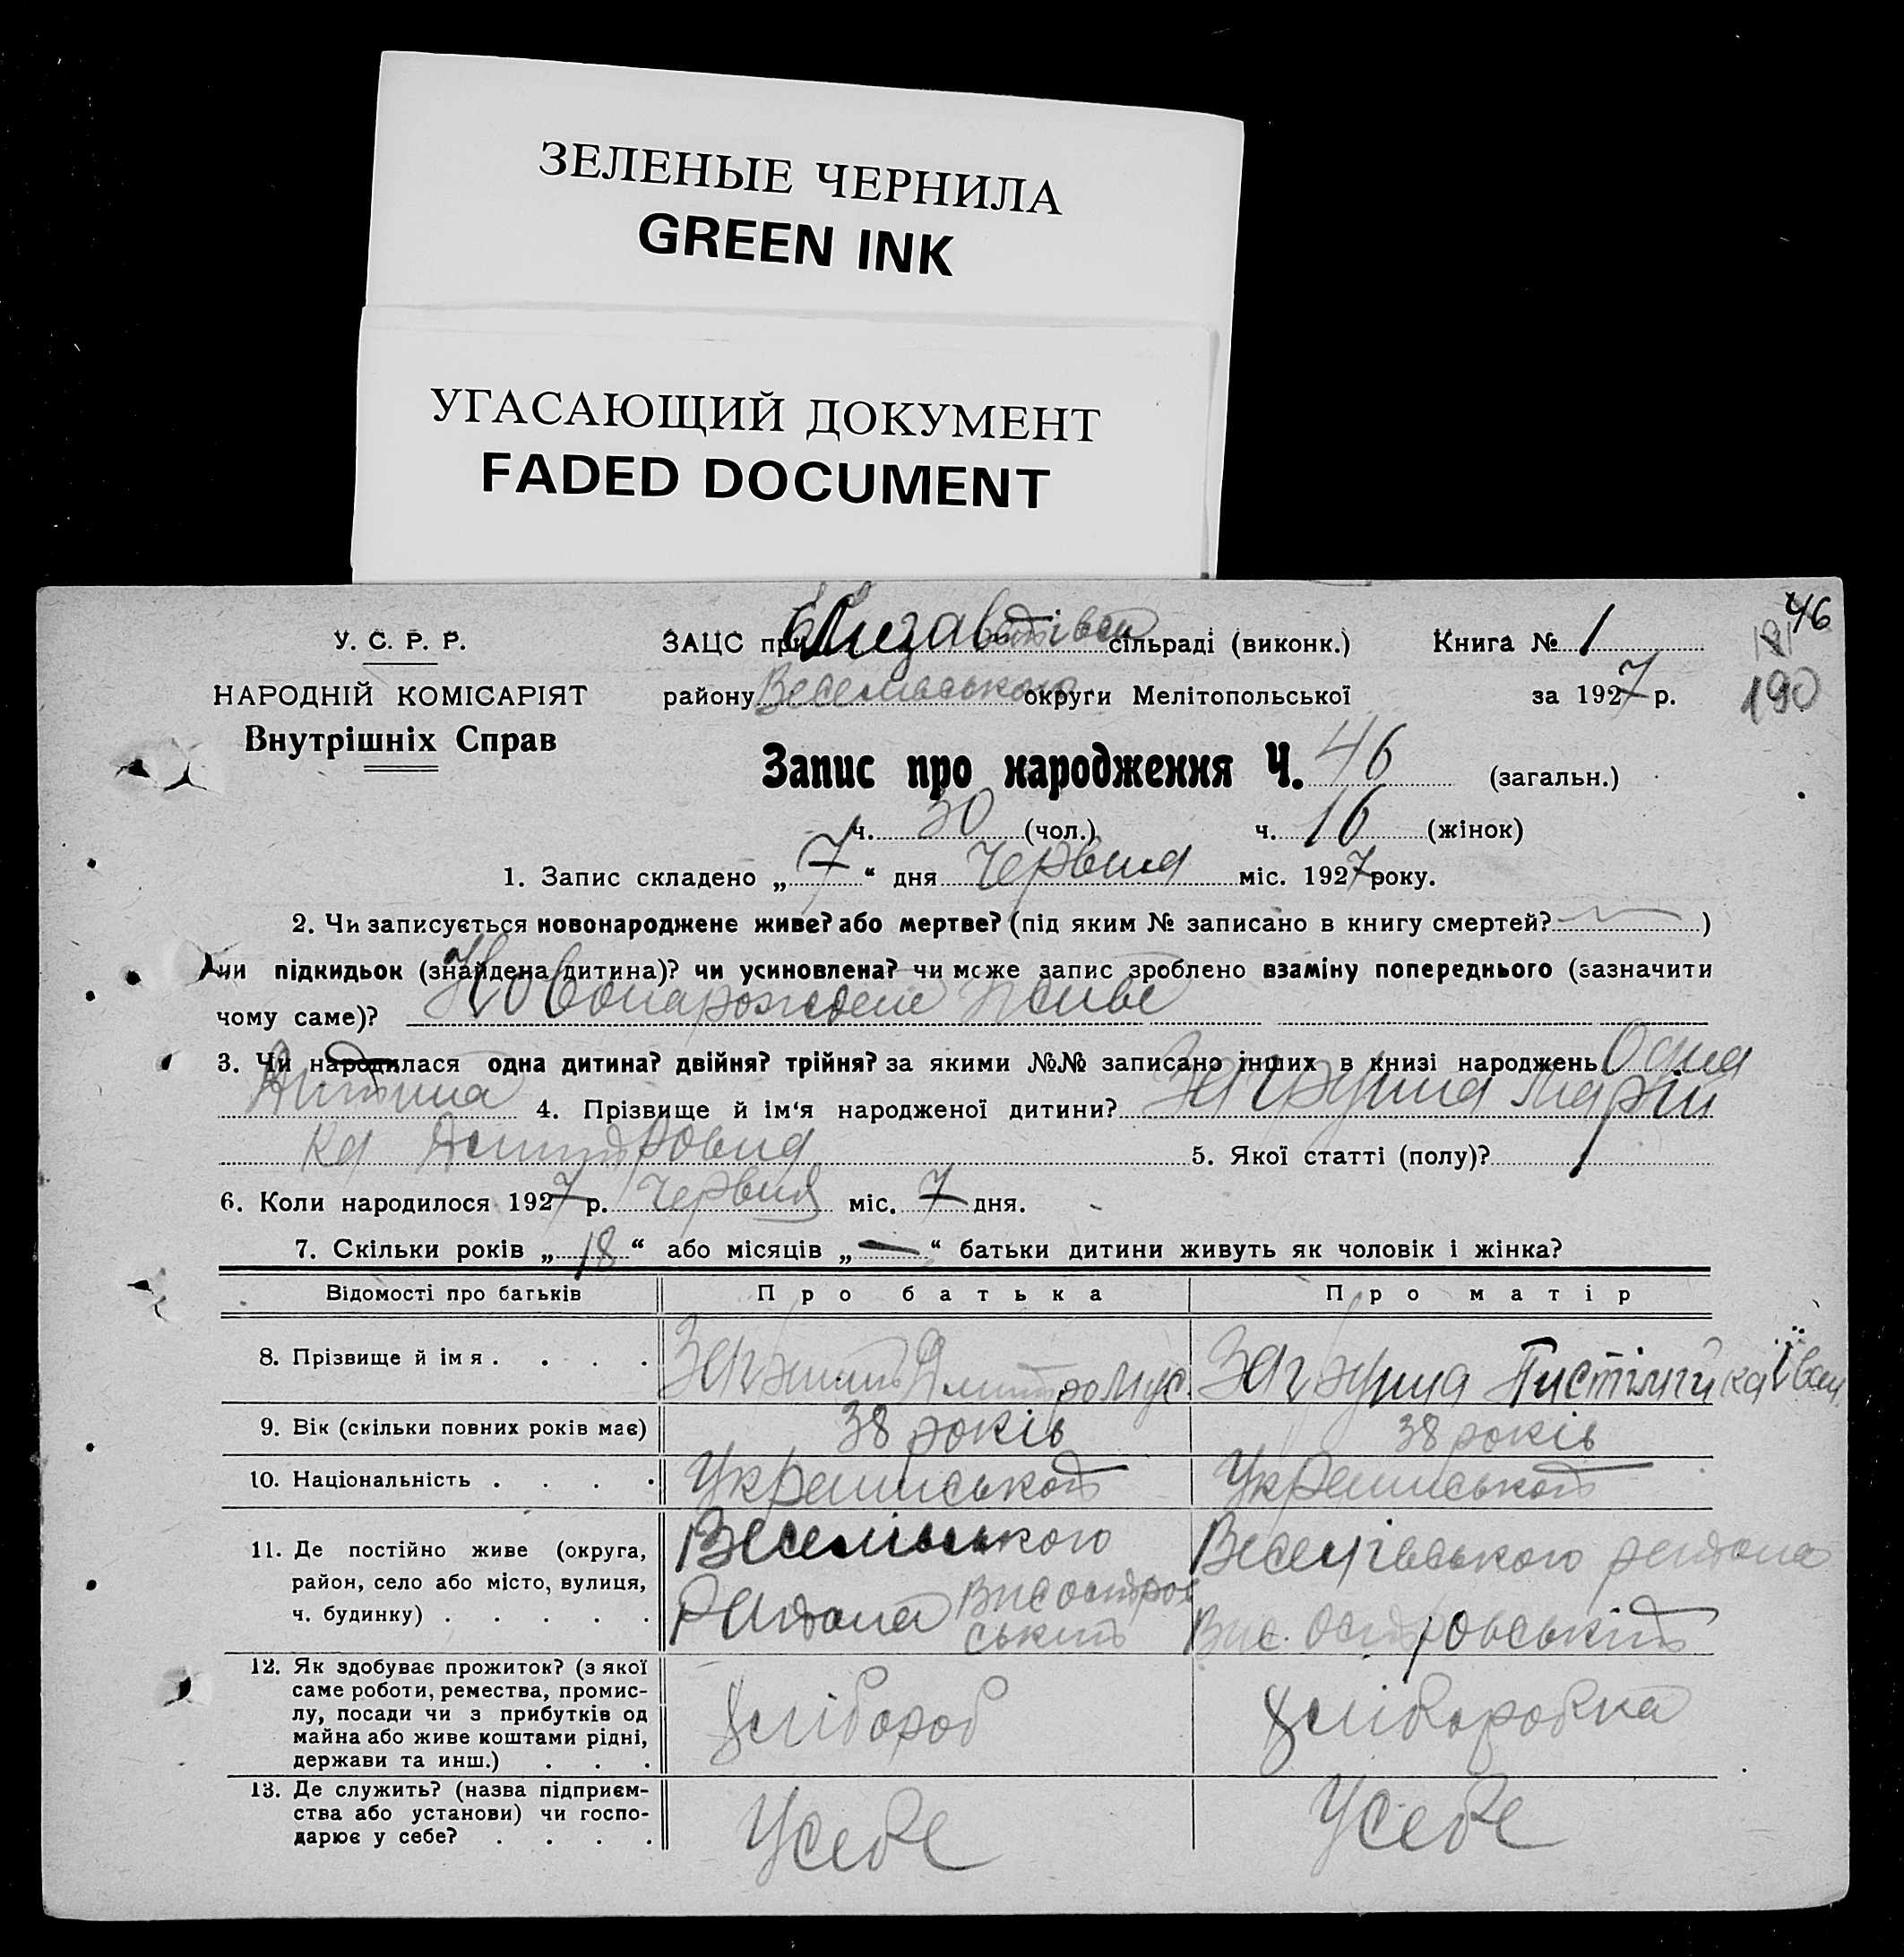 ЗЕЛЕНЫЕ ЧЕРНИЛА
GREEN INK
УГАСАЮЩИЙ ДОКУМЕНТ
FADED DOCUMENT
У. С. Р. Р.
НАРОДНІЙ КОМІСАРІЯТ
Внутрішніх Справ
ЗАЦС при сільраді (виконк.) Книга № 1
46
191
190
району Веселівського округи Мелітопольської за 1927 р.
Запис про народження Ч. 46 (загальн.)
ч. 30 (чол.) ч. 16 (жінок)
1. Запис складено „ 7 “ дня Червня міс. 1927 року.
2. Чи записується новонароджене живе? або мертве? (під яким № записано в книгу смертей? )
чи підкидьок (знайдена дитина)? чи усиновлена? чи може запис зроблено взаміну попереднього (зазначити
чому саме)? Новонарождене живе
3. Чи народилася одна дитина? двійня? трійня? за якими №№ записано інших в книзі народжень Одна
Дитина 4. Прізвище й ім‘я народженої дитини? Марій
ка Дмитровна 5. Якої статті (полу)?
6. Коли народилося 1927 р. Червня міс. 7 дня.
7. Скільки років „ 18 “ або місяців „ — “ батьки дитини живуть як чоловік і жінка?
Відомості про батьків Про батька Про матір
8. Прізвище й імя . . . . Дмитро Мус.
9. Вік (скільки повних років має) 38 років 38 років
10. Національність . . . .
11. Де постійно живе (округа, Веселівського Веселівського района
район, село або місто, вулиця, Района Висостров
ч. будинку) . . . . . ський Вис. Островський
12. Як здобуває прожиток? (з якої
саме роботи, ремества, промис-
лу, посади чи з прибутків од Хлібороб Хліборобка
майна або живе коштами рідні,
держави та инш.) . . .
13. Де служить? (назва підприєм-
ства або установи) чи госпо- У себе У себе
дарює у себе? . . . .